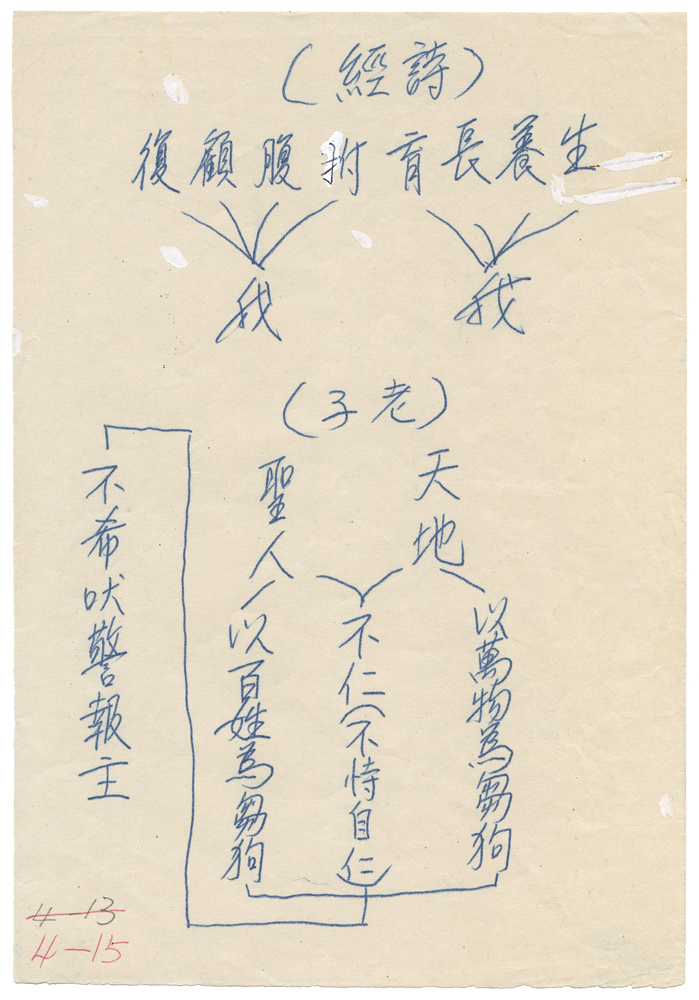 （詩經）
生養長育拊腹顧復
我
我
（老子）
天地
聖人
以萬物為芻狗
不仁（不恃自仁）
以百姓為芻狗
不希吠警報主
4-13
4-15